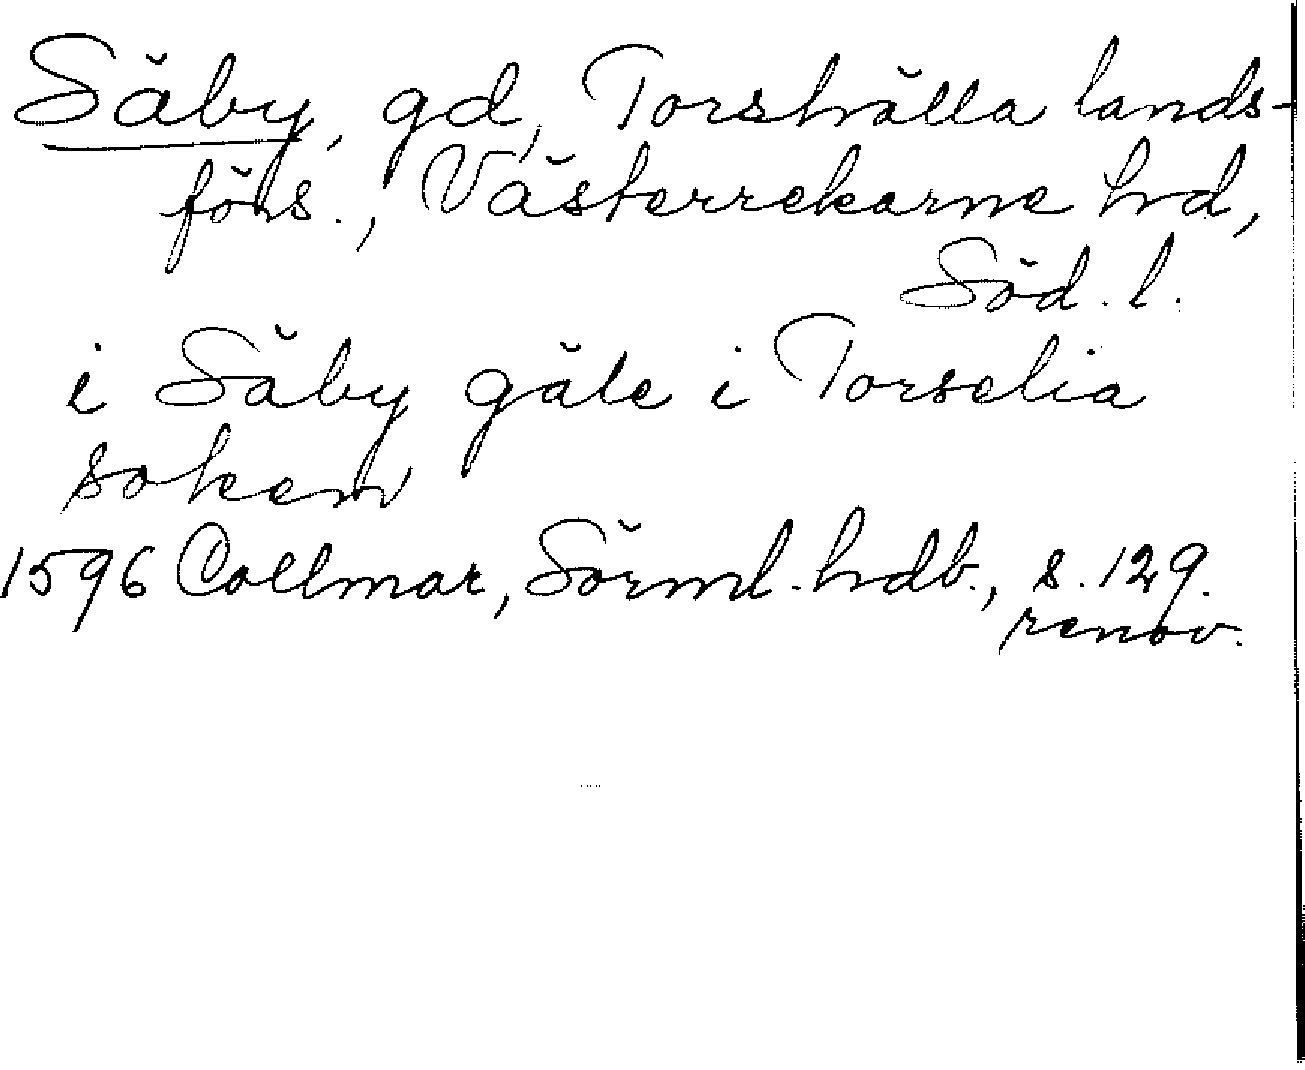 Säby, gd, Torshälla lands-
förs., Västerrekarne hd,
Söd. l.
i Säby gäle i Torselia
soken
1596 Collmar, Sörml. hdb., s. 129.
renov.